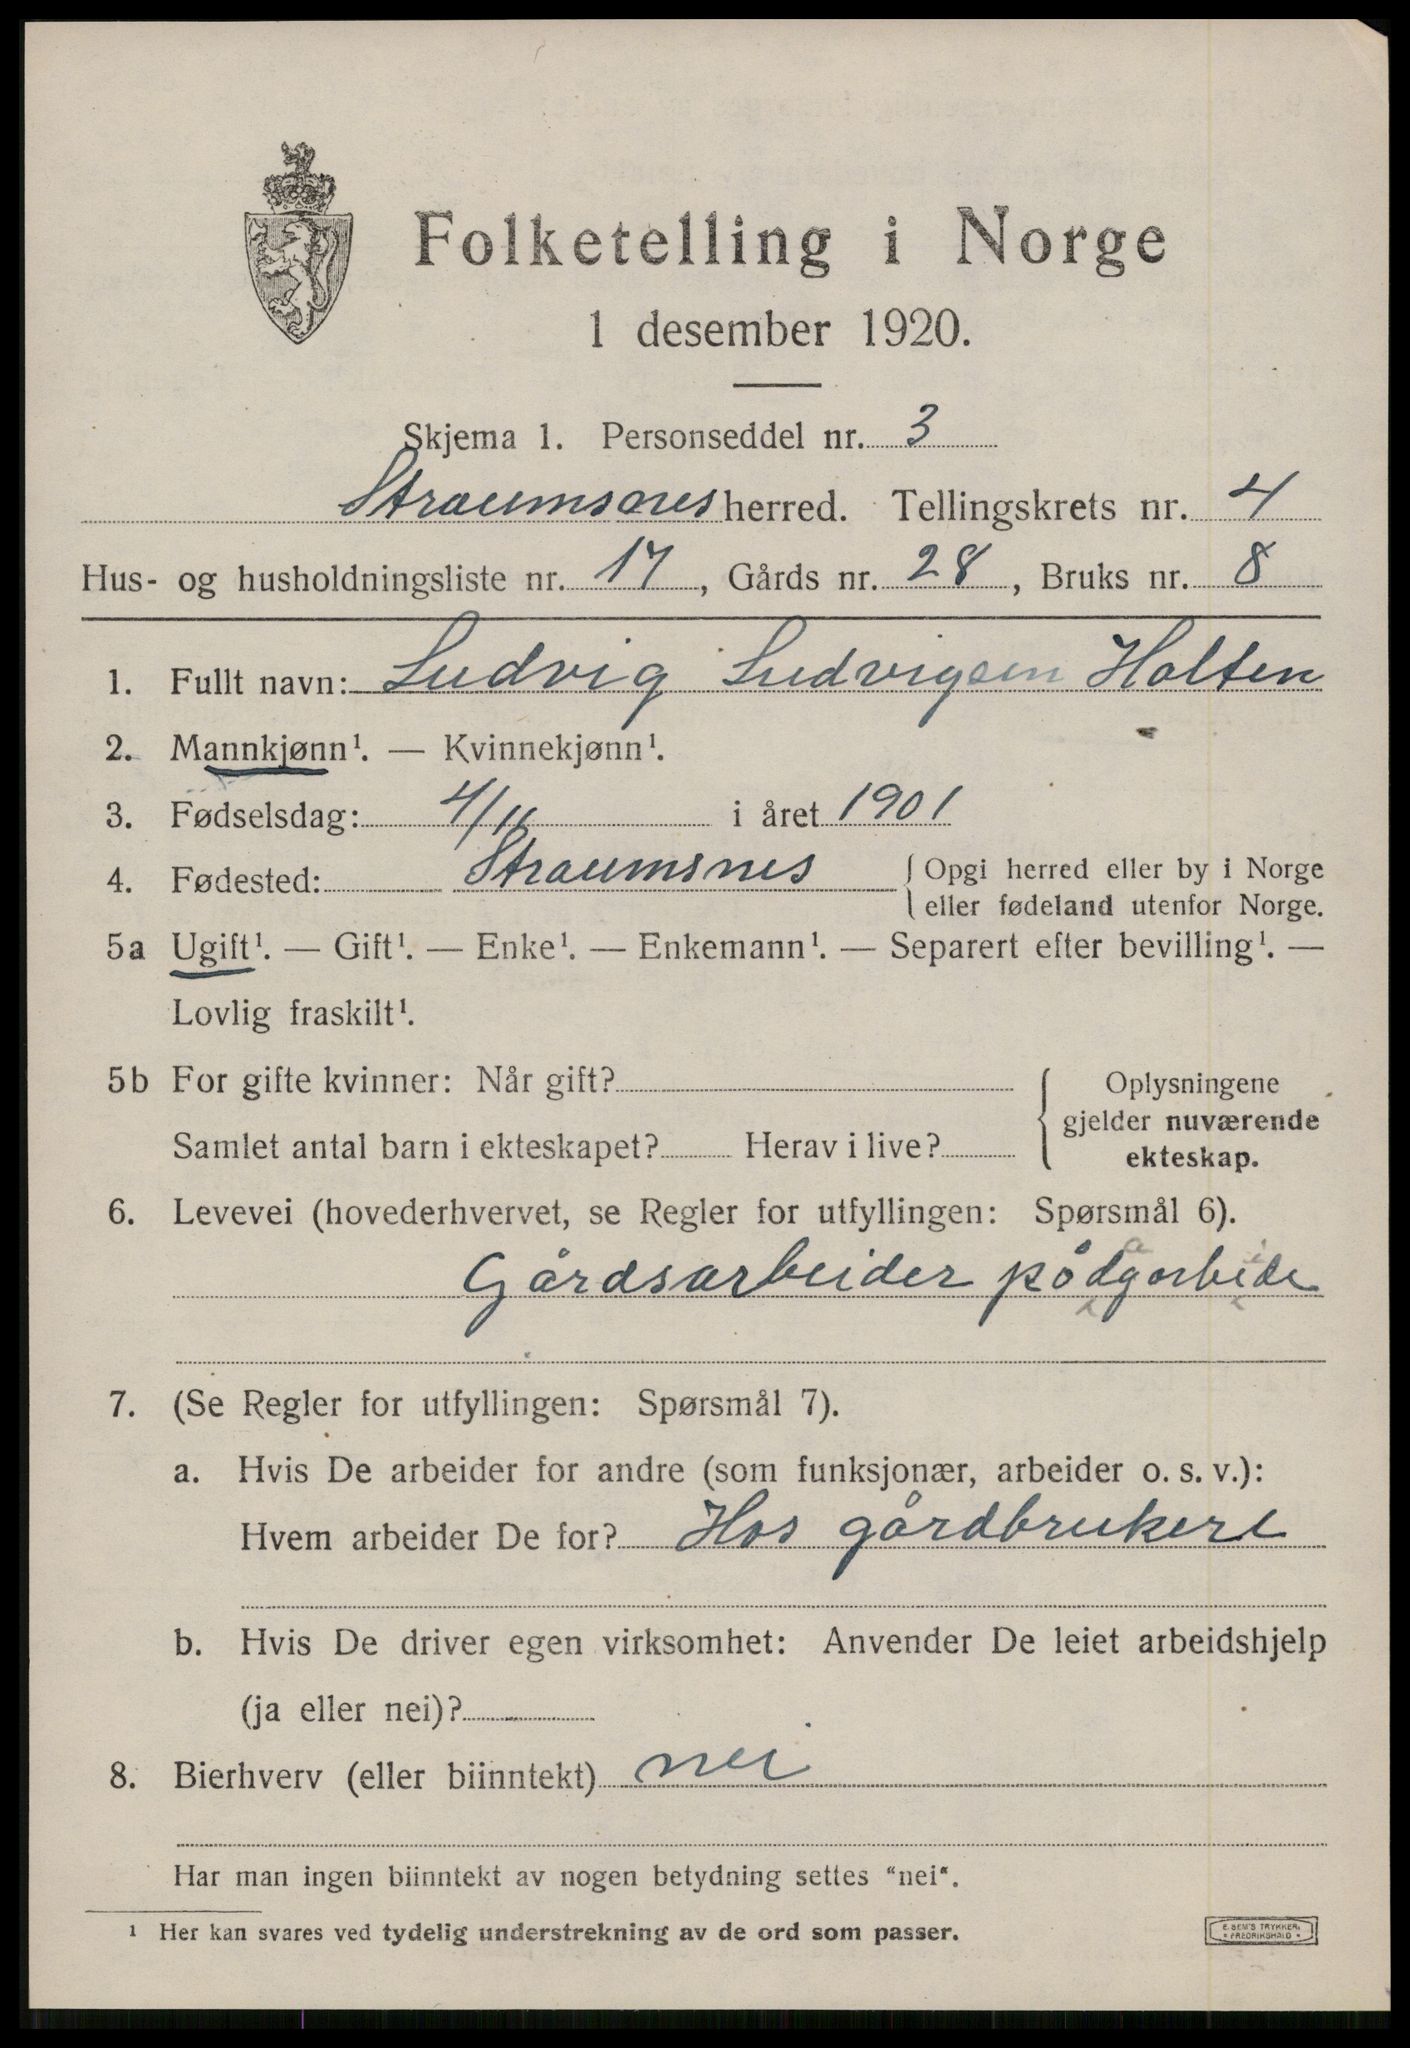 Folketelling i Norge
1 desember 1920.
Skjema 1. Personseddel nr. 3
Straumsnes herred. Tellingskrets nr. 4
Hus- og husholdningsliste nr. 17, Gårds nr. 28, Bruks nr. 8
1. Fullt navn: Ludvig Ludvigsen Holten
2. Mannkjønn¹. — Kvinnekjønn¹.
3. Fødselsdag: 4/11 i året 1901
4. Fødested: Straumsnes { Opgi herred eller by i Norge
eller fødeland utenfor Norge.
5a Ugift¹. — Gift¹. — Enke¹. — Enkemann¹. — Separert efter bevilling¹. —
Lovlig fraskilt¹.
5b For gifte kvinner: Når gift? { Oplysningene
gjelder nuværende
ekteskap.
Samlet antal barn i ekteskapet? Herav i live?
6. Levevei (hovederhvervet, se Regler for utfyllingen: Spørsmål 6).
Gårdsarbeider på dagarbeide
7. (Se Regler for utfyllingen: Spørsmål 7).
a. Hvis De arbeider for andre (som funksjonær, arbeider o. s. v.):
Hvem arbeider De for? Hos gårdbrukere
b. Hvis De driver egen virksomhet: Anvender De leiet arbeidshjelp
(ja eller nei)?
8. Bierhverv (eller biinntekt) nei
Har man ingen biinntekt av nogen betydning settes “nei“.
¹ Her kan svares ved tydelig understrekning av de ord som passer.
E. SEM'S TRYKKERI
* FREDRIKSHALD *